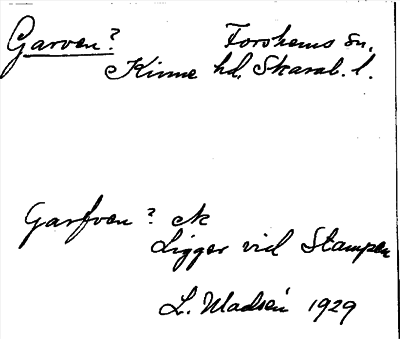 Garven? Forshems sn.
Kinne hd. Skarab. l.
Garfven? ek
Ligger vid Stampen
L. Madsén 1929